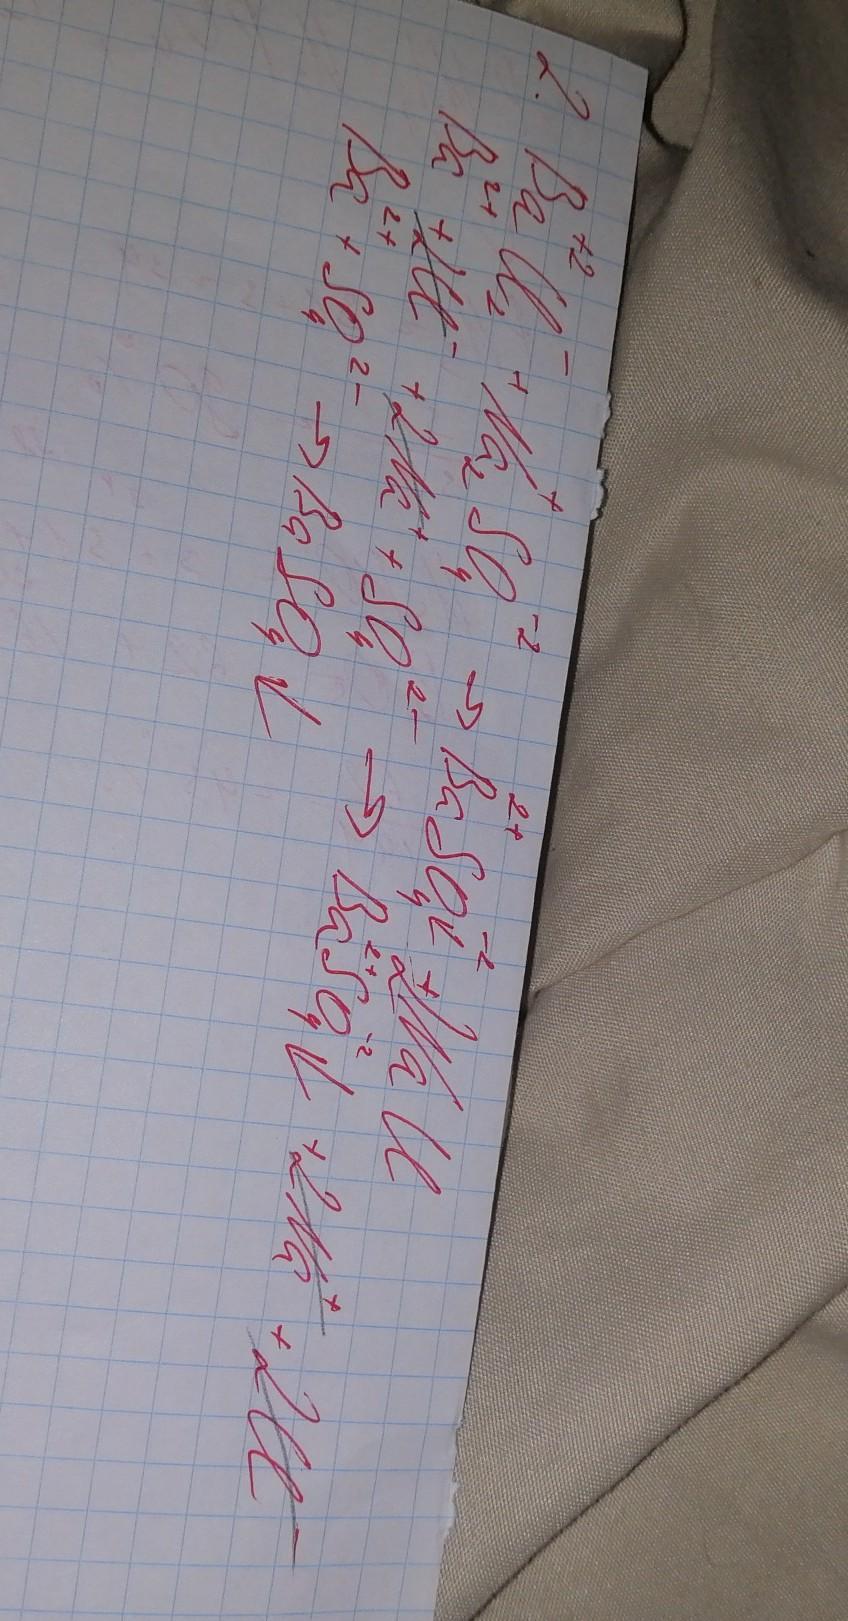 2. Ba⁺²Cl₂⁻ + Na₂⁺SO₄⁻² → Ba²⁺SO₄⁻²↓ + 2NaCl
Ba²⁺ + 2Cl⁻ + 2Na⁺ + SO₄²⁻ → Ba²⁺SO₄⁻²↓ + 2Na⁺ + 2Cl⁻
Ba²⁺ + SO₄²⁻ → BaSO₄↓